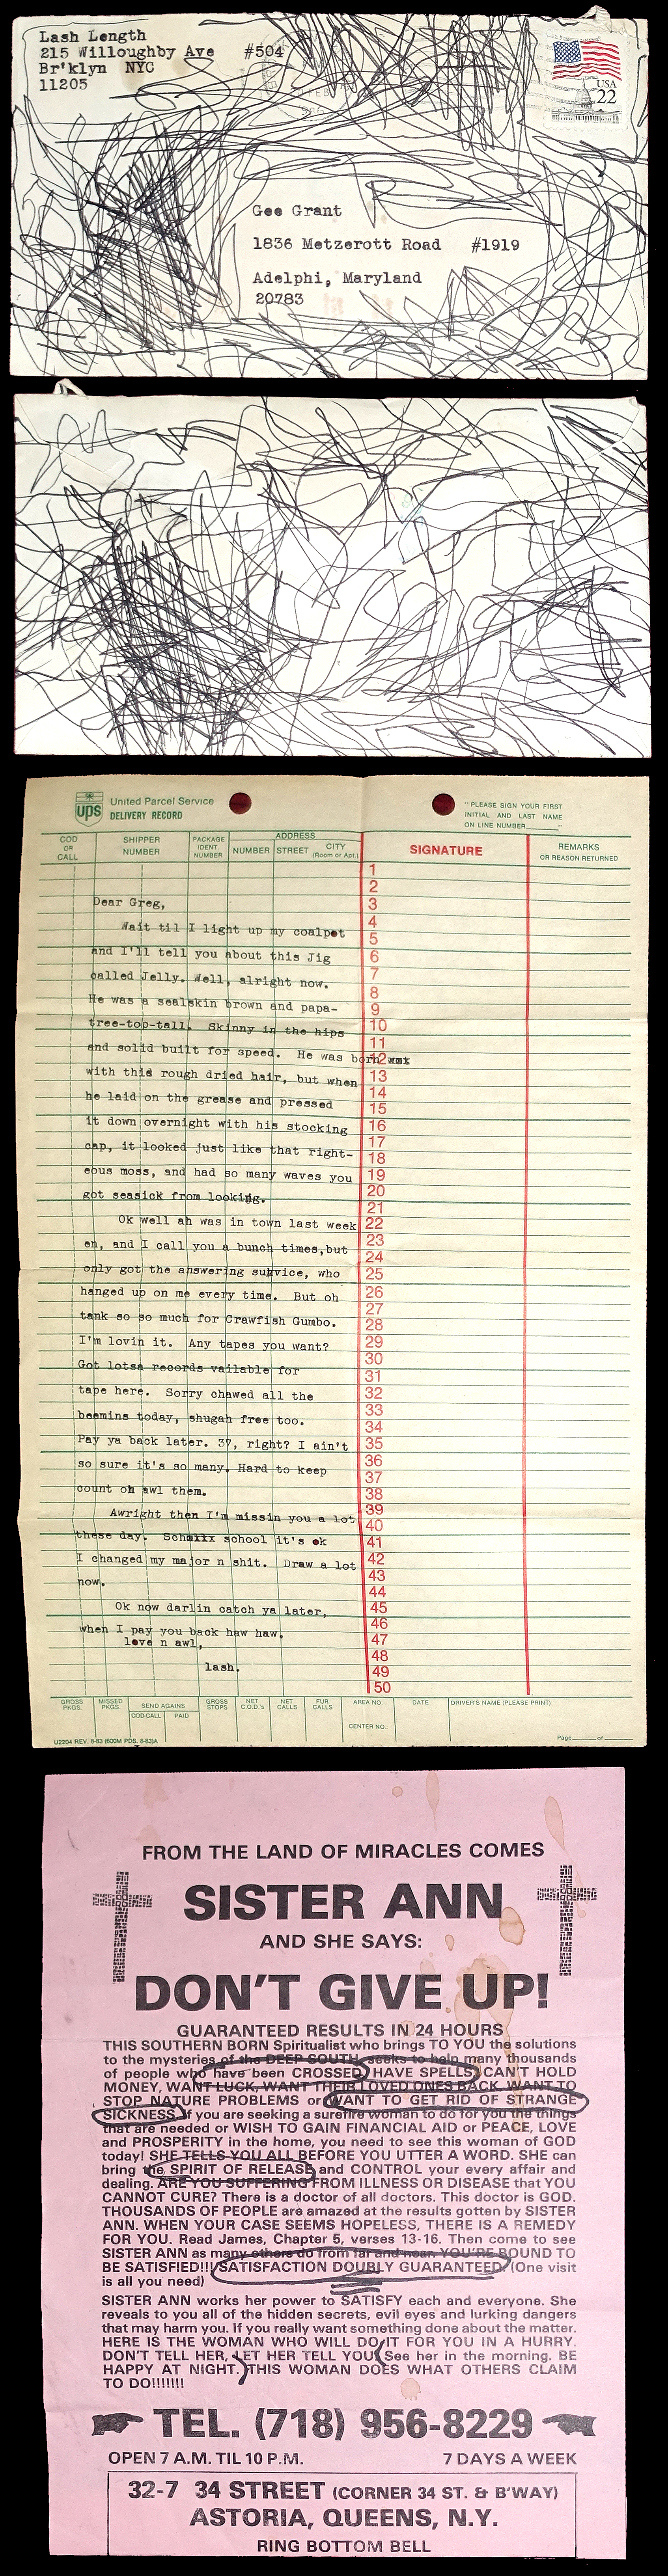 Lash Length
215 Willoughby Ave #504
Br'klyn NYC
11205
USA
22
Gee Grant
1836 Metzerott Road #1919
Adelphi, Maryland
20783
ups
United Parcel Service
DELIVERY RECORD
"PLEASE SIGN YOUR FIRST
INITIAL AND LAST NAME
ON LINE NUMBER______"
COD OR CALL
SHIPPER NUMBER
PACKAGE IDENT. NUMBER
ADDRESS
NUMBER STREET CITY
(Room or Apt.)
SIGNATURE
REMARKS
OR REASON RETURNED
1
2
3
4
5
6
7
8
9
10
11
12
13
14
15
16
17
18
19
20
21
22
23
24
25
26
27
28
29
30
31
32
33
34
35
36
37
38
39
40
41
42
43
44
45
46
47
48
49
50
Dear Greg,
Wait til I light up my coalpot
and I'll tell you about this Jig
called Jelly. Well, alright now.
He was a sealskin brown and papa-
tree-top-tall. Skinny in the hips
and solid built for speed. He was born
with this rough dried hair, but when
he laid on the grease and pressed
it down overnight with his stocking
cap, it looked just like that right-
eous moss, and had so many waves you
got seasick from looking.
Ok well ah was in town last week
en, and I call you a bunch times,but
only got the answering survice, who
hanged up on me every time. But oh
tank so so much for Crawfish Gumbo.
I'm lovin it. Any tapes you want?
Got lotsa records vailable for
tape here. Sorry chawed all the
beemins today, shugah free too.
Pay ya back later. 37, right? I ain't
so sure it's so many. Hard to keep
count oh awl them.
Awright then I'm missin you a lot
these day. school it's ok
I changed my major n shit. Draw a lot
now.
Ok now darlin catch ya later,
when I pay you back haw haw.
love n awl,
lash.
GROSS PKGS.
MISSED PKGS.
SEND AGAINS
COD-CALL PAID
GROSS STOPS
NET C.O.D.'s
NET CALLS
FUR CALLS
AREA NO.
CENTER NO.
DATE
DRIVER'S NAME (PLEASE PRINT)
U2204 REV. 8-83 (600M PDS. 8-83)A
Page______of______
FROM THE LAND OF MIRACLES COMES
SISTER ANN
AND SHE SAYS:
DON'T GIVE UP!
GUARANTEED RESULTS IN 24 HOURS
THIS SOUTHERN BORN Spiritualist who brings TO YOU the solutions
to the mysteries of the DEEP SOUTH, seeks to help many thousands
of people who have been CROSSED, HAVE SPELLS, CAN'T HOLD
MONEY, WANT LUCK, WANT THEIR LOVED ONES BACK, WANT TO
STOP NATURE PROBLEMS or WANT TO GET RID OF STRANGE
SICKNESS. If you are seeking a surefire woman to do for you the things
that are needed or WISH TO GAIN FINANCIAL AID or PEACE, LOVE
and PROSPERITY in the home, you need to see this woman of GOD
today! SHE TELLS YOU ALL BEFORE YOU UTTER A WORD. SHE can
bring the SPIRIT OF RELEASE and CONTROL your every affair and
dealing. ARE YOU SUFFERING FROM ILLNESS OR DISEASE that YOU
CANNOT CURE? There is a doctor of all doctors. This doctor is GOD.
THOUSANDS OF PEOPLE are amazed at the results gotten by SISTER
ANN. WHEN YOUR CASE SEEMS HOPELESS, THERE IS A REMEDY
FOR YOU. Read James, Chapter 5, verses 13-16. Then come to see
SISTER ANN as many others do from far and near. YOU'RE BOUND TO
BE SATISFIED!!! SATISFACTION DOUBLY GUARANTEED. (One visit
is all you need)
SISTER ANN works her power to SATISFY each and everyone. She
reveals to you all of the hidden secrets, evil eyes and lurking dangers
that may harm you. If you really want something done about the matter.
HERE IS THE WOMAN WHO WILL DO IT FOR YOU IN A HURRY.
DON'T TELL HER, LET HER TELL YOU. See her in the morning. BE
HAPPY AT NIGHT. THIS WOMAN DOES WHAT OTHERS CLAIM
TO DO!!!!!!!
TEL. (718) 956-8229
OPEN 7 A.M. TIL 10 P.M. 7 DAYS A WEEK
32-7 34 STREET (CORNER 34 ST. & B'WAY)
ASTORIA, QUEENS, N.Y.
RING BOTTOM BELL